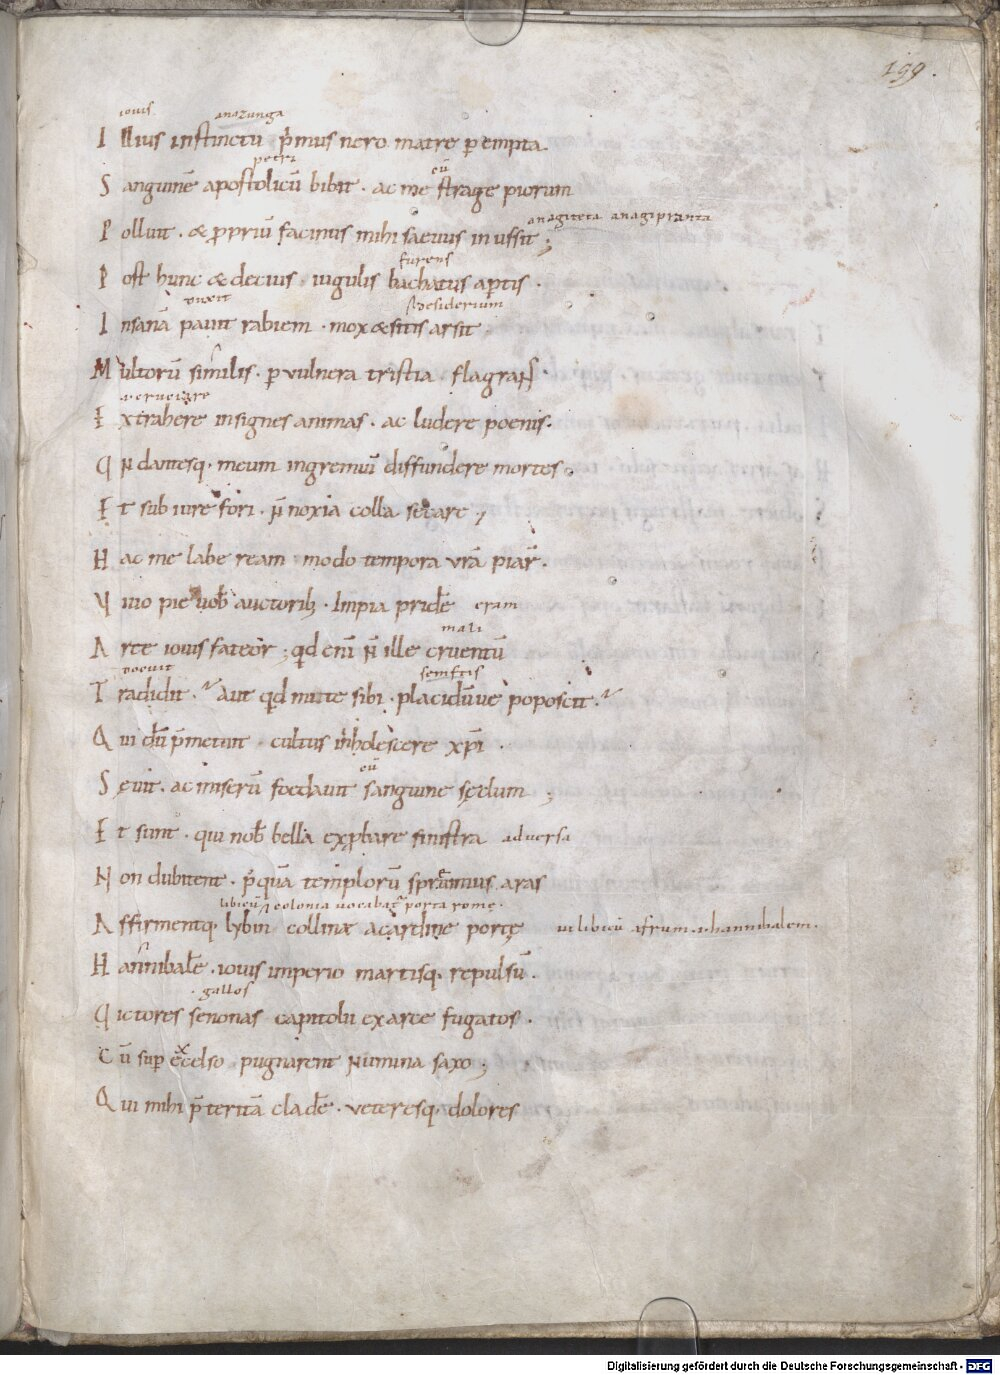 199.
iouis. anazunga
I llius instinctu p̄mus nero matre perempta.
petri eū
S anguinē apostolicū bibit. ac me strage piorum
anagiteta anagipranta
P olluit. & ꝓpriū facinus mihi saeuus inussit;
furens
P ost hunc & decius. iugulis bachatus aptis.
duxit desiderium
I nsanā pauit rabiem. mox & sitis arsit
M ultorū similis. ꝑ vulnera tristia. flagrans
i. cruciare
E xtrahere insignes animas. ac ludere poenis.
V ndantesq. meum ingremiū diffundere mortes.
E t sub iure fori. ñ noxia colla secare;
H ac me labe ream modo tempora vr̄a piar̄.
V iuo pie uob̄ auctorib; Impia pridē eram
mali
A rte iouis fateor; qd enī ñ ille cruentū
docuit
T radidit. Aut qd mitte sibi. placidūue poposcit.
Q ui dū p̄metuit. cultus inholescere xp̄i.
eū
S ęuit. ac miserū foedauit sanguine sęclum;
E t sunt. qui nob̄ bella exprobare sinistra adversa
N on dubitent. p̄quā templorū spramus aras
libicū colonia uocabat̄ porta rome.
A ffirmentq. lybin collinae a cardine portę ut libicū afrum .i. hannibalem.
H annibalē. iouis imperio martisq. repulsū.
gallos
V ictores senonas capitolii ex arce fugatos.
C ū sup excelso pugnarent numina saxo;
Q ui mihi p̄teritā cladē. veteresq. dolores
Digitalisierung gefördert durch die Deutsche Forschungsgemeinschaft - DFG